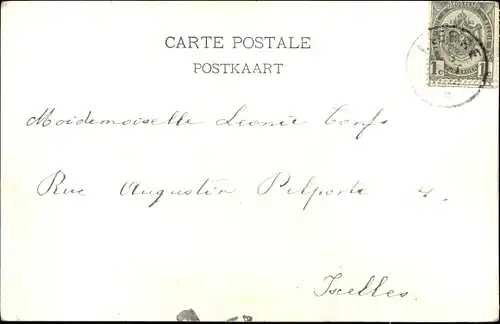 CARTE POSTALE
POSTKAART
1c 1c
Moidemoiselle Leonie Corfs
Rue Augustin Delporte 4.
Ixelles.